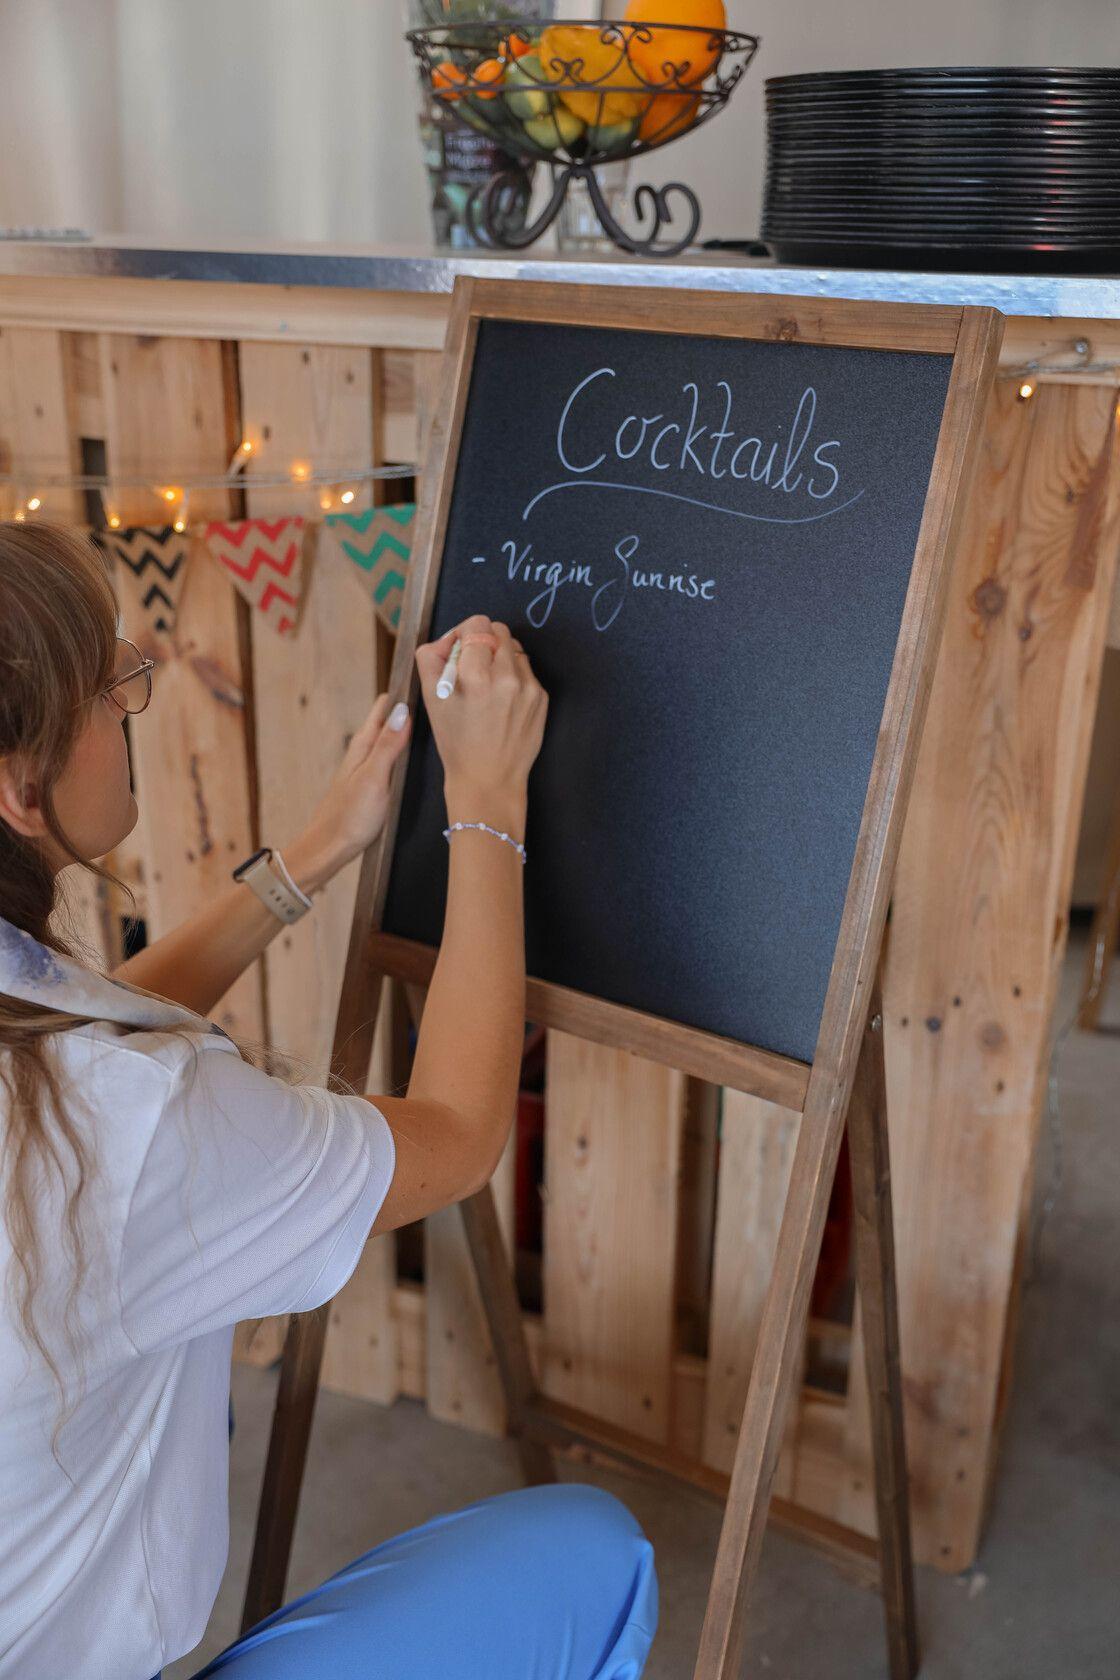 Cocktails
- Virgin Sunrise